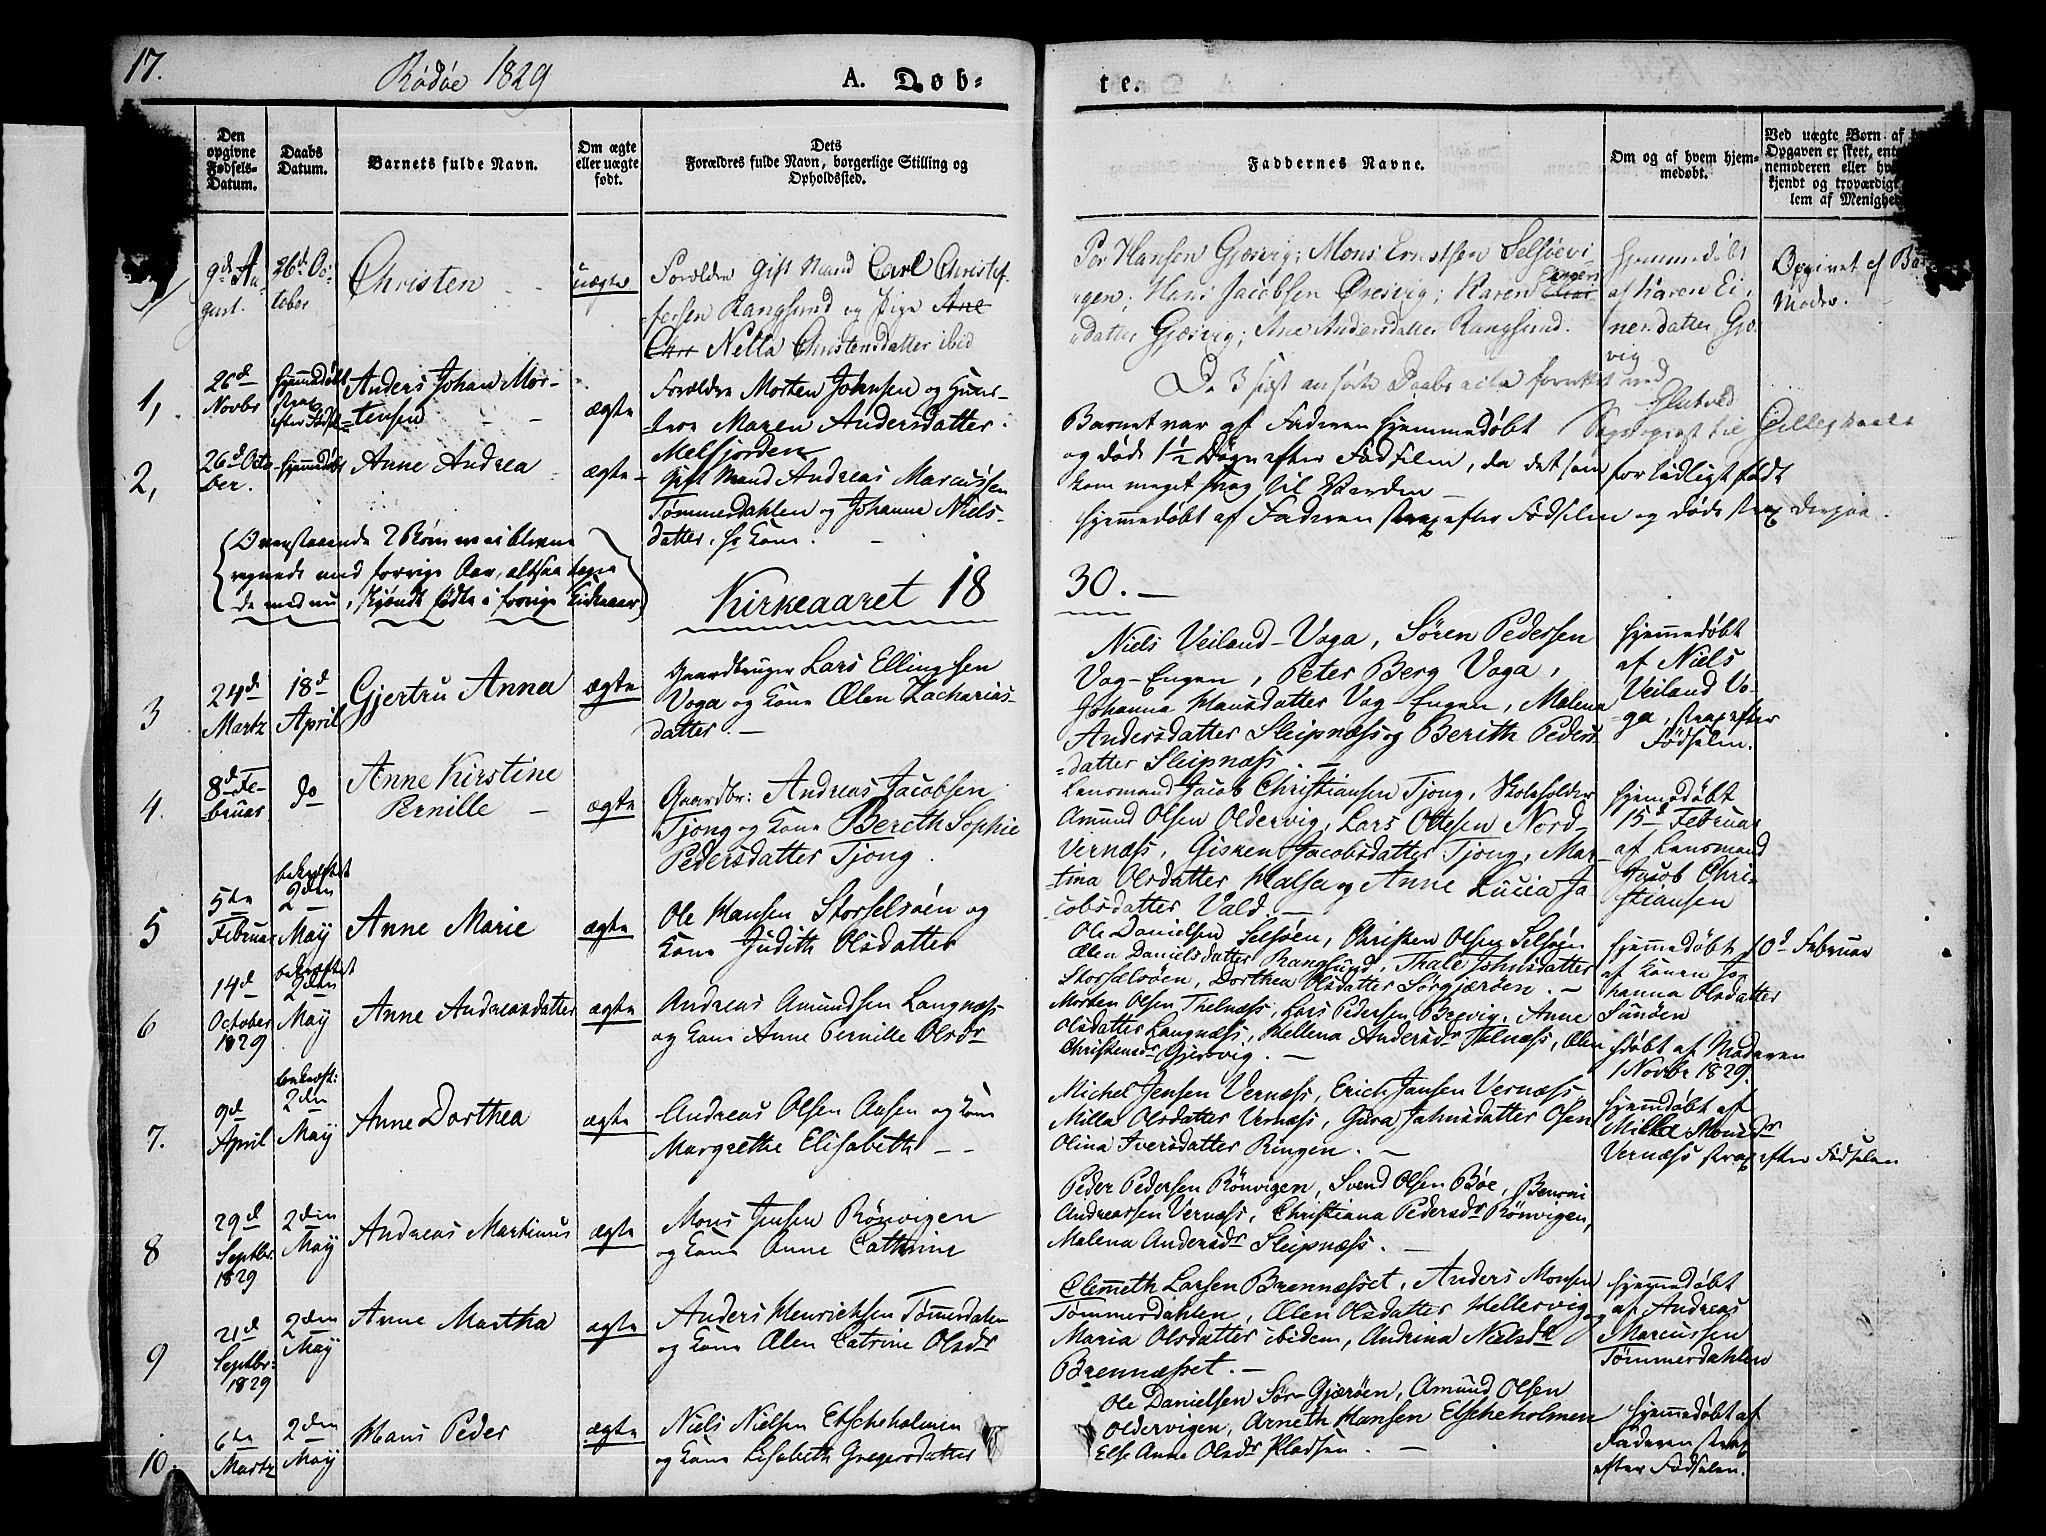 17.
Rödöe 1829
A. Døb-
te.
Den opgivne Fødsels-Datum.
Daabs Datum.
Barnets fulde Navn.
Om ægte eller uægte født.
Dets
Forældres fulde Navn, borgerlige Stilling og
Opholdssted.
Faddernes Navne.
Om og af hvem hjem-
medøbt.
Ved uægte Børn af
Opgaven er skeet, ent
nemoderen eller
kjendt og troværdigt
lem af Menighed
9de Au-
gust.
26de Oc-
tober
Christen
uægte
Forældre Gift Mand Carl Christof-
fersen Rangsund og Pige Ane
Chr Nella Christensdatter ibid
Per Hansen Gjæsvig; Mons Erntsen Selsøevi-
gen; Hans Jacobsen Øresvig; Karen
datter Gjæsvig; Ane Andersdatter Rangsund.
Hjemmedøbt
af Karen Ei-
nersdatter Gjæ-
vig
Opgivet af
Moder.
1,
26de
Novbr
Hjemmedøbt
strax
efter Føds
Anders Johan Mor-
tensen
ægte
Forældre Morten Johnsen og
Maren Andersdatter.
Melfjorden
Barnet var af Faderen hjemmedøbt
og døde 1½ Døgn efter Fødselen, da det som for tidligt født
kom meget svag til Verden
2,
26de Octo
ber.
hjemmedøbt
Anne Andrea
ægte
Gift Mand Andreas Marcussen
Tømmerdahlen og Johanna Niels-
datter, hs Kone.
Hjemmedøbt af Faderen strax efter Fødselen og døde strax derpaa.
Ovenstaaende 2 Børn ere ei blevne
regnede med forrige Aar, altsaa tagne
de med nu, skjøndt fødte i forrige Kirkeaar
Kirkeaaret 18
30.
3
24de
Martz
18de
April
Gjertru Anna
ægte
Gaardbruger Lars Ellingsen
Voga og Kone Ælen Zacharias-
datter.
Niels Veiland-Voga, Søren Pedersen
Vog-Engen, Peter Berg Voga,
Johanna Hansdatter Vog-Engen, Malena
Andersdatter Sleipnæss og Berith Peders-
datter Sleipnæss.
Hjemmedøbt
af Niels
Veiland Vo-
ga, strax efter
Fødselen.
4.
8de Fe-
bruar
do
Anne Kirstine
Pernille
ægte
Gaardbr: Andreas Jacobsen
Tjong og Kone Bereth Sophie
Pedersdatter Tjong.
Lensmand Jacob Christiansen Tjong, Skoleholder
Amund Olsen Oldervig, Lars Ottesen Nord-
Vernæss, Gisken Jacobsdatter Tjong, Mar-
tina Olsdatter Halsa og Anne Lucia Ja
cobsdatter Vald.
Hjemmedøbt
15de Februar
af Lensmand
Jacob Chri-
stiansen
5
5te
Februar
bekræftet
2den
May
Anne Marie
ægte
Ole Hansen Storselsöen og
Kone Judith Olsdatter
Ole Danielsen Selsöen, Christen Olsen Selsöen
Ælen Danielsdatter Rangsund, Thale Johnsdatter
Storselsöen, Dorthea Olsdatter Sörgjæröen.
Hjemmedøbt 10de Februar
af Konen Jo-
hanna Olsdatter
Sunöen
6
14de
October
1829
bekræftet
2den
May
Anne Andreasdatter
ægte
Andreas Amundsen Langnæss
og Kone Anne Pernille Olsdr
Morten Olsen Thelnæss, Lars Pedersen Brevig, Anne
Olsdatter Langnæss, Hellena Andersdr Thelnæss, Ælen
Christensdr Gjersvig.
hdøbt af Moderen
1 Novbr 1829.
7.
9de
April
bekræft:
2den
May
Anne Dorthea
ægte
Andreas Olsen Aasen og Kone
Margrethe Elisabeth
Michel Jensen Vernæss, Erich Jansen Vernæss,
Milla Olsdatter Vernæss, Gura Jahnsdatter Osen
Olina Iversdatter Ringen.
Hjemmedøbt af
Milla Monsdr
Vernæss strax efter Fødselen
8
29de
Septbr.
1829
2den
May
Andreas Martinus
ægte
Mons Jensen Rönvigen
og Kone Anne Cathrine
Peder Pedersen Rönvigen, Svend Olsen Böe, Benoni
Andreassen Vernæss, Christiana Pedersdr Rönvigen,
Malena Andersdr Sleipnæss.
9
21de
Septbr:
1829
2den
May
Anne Martha
ægte
Anders Henrichsen Tömmerdalen
og Kone Ælen Catrine Olsdr
Clemeth Larsen Brennæsset, Anders Monsen
Tømmerdahlen, Ælen Olsdatter Hellervig og
Maria Olsdatter ibidem, Andrina Nielsdr
Brennæsset.
Hjemmedøbt
af Andreas
Marcussen
Tømmerdahlen
10.
6te
Martz
2den
May
Hans Peder
ægte
Niels Nielsen Esscheholmen
og Kone Lisabeth Gregersdatter
Ole Danielsen Sör-Gjæröen, Amund Olsen
Oldervigen, Arneth Hansen Esscheholmen
Else Anne Olsdr Pladsen.
Hjemmedøbt af
Faderen strax
efter Fødselen.